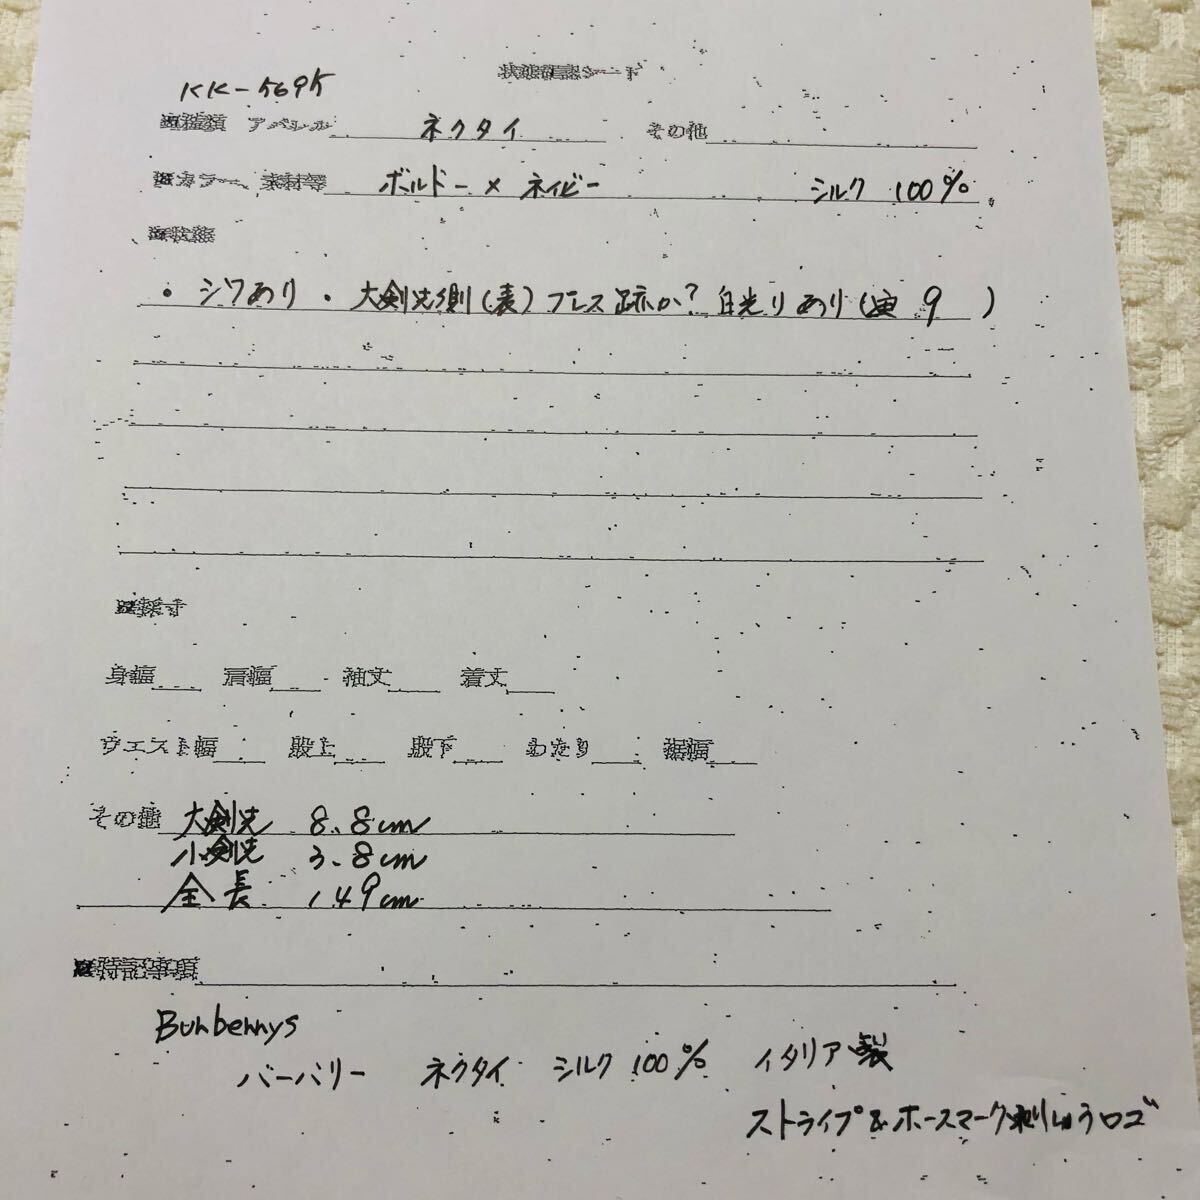 状態確認シート
KK-5695
※種類 アパレル ネクタイ その他
※カラー、素材等 ボルドー×ネイビー シルク 100%
※状態
・シワあり ・大剣先側(表)プレス跡か?白光りあり(画 9 )
※採寸
身幅 肩幅 袖丈 着丈
ウエスト幅 股上 股下 わたり 裾幅
その他 大剣先 8.8cm
小剣先 3.8cm
全長 149cm
※特記事項
Burberrys
バーバリー ネクタイ シルク 100% イタリア製
ストライプ&ホースマーク刺しゅうロゴ